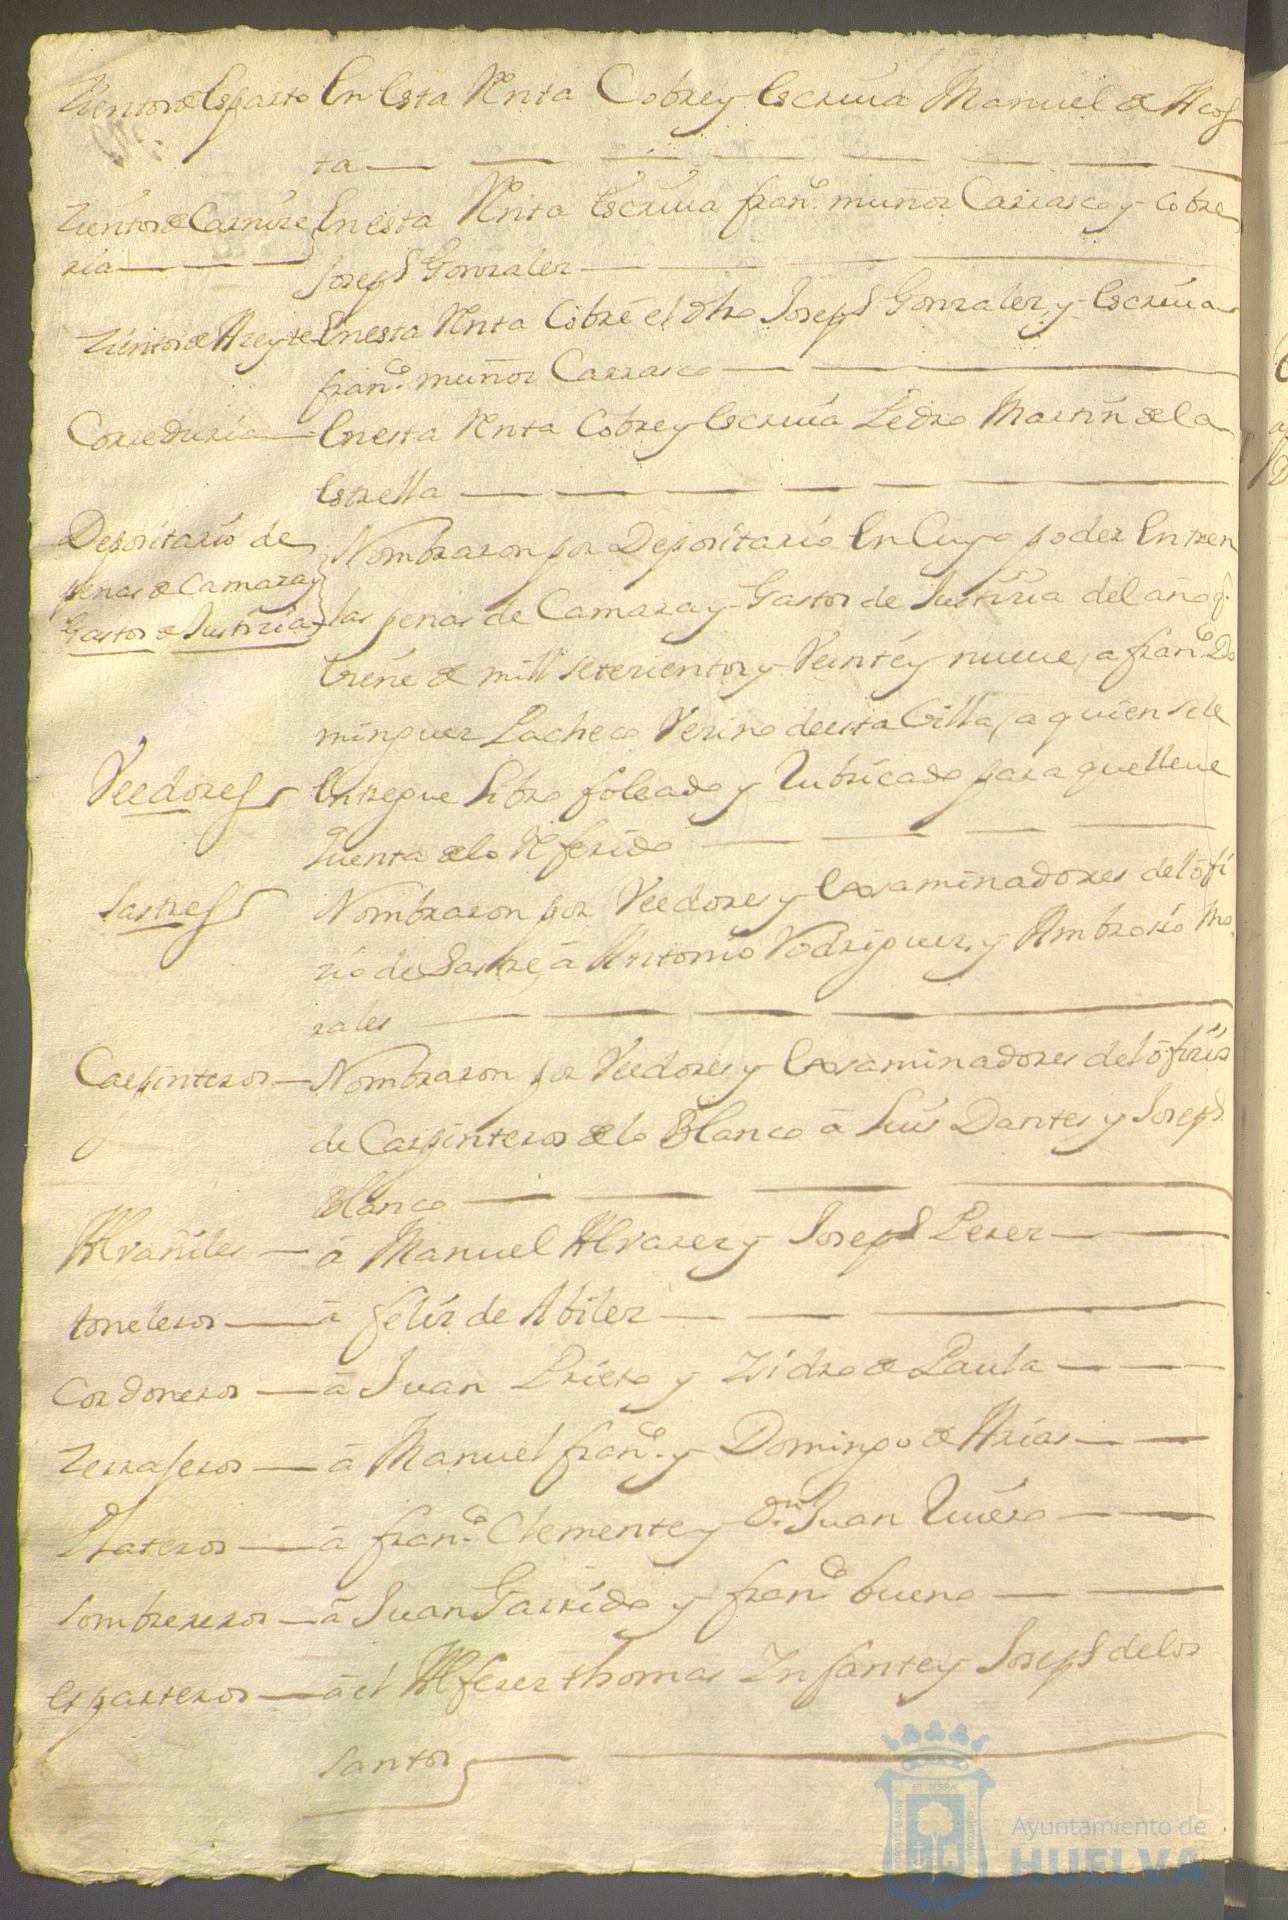 Zientos de Esparto En esta Renta Cobre y Escriua Manuel de Acos
ta
Zientos de Carnize En esta Renta Escriua fran.co muñoz Carrasco y cobre
ria Joseph Gonzalez
Zientos de Azeyte En esta Renta Cobre el dho Joseph Gonzalez y Escriua
fran.co muñoz Carrasco
Correduria En esta Renta Cobre y Escriua Pedro Martin de la
Estrella
Depositario de Nombraron por Depositario En Cuyo poder Entren
penas de Camara y las penas de Camara y Gastos de Justizia del año q.e
Gastos de Justizia
biene de mill setezientos y Veinte y nueue, a fran.co Do
minguez Pacheco Vezino de esta Villa, a quien se le
Veedores Entregue Libro foleado y Rubricado para que lleue
quenta de lo Referido
Sastres Nombraron por Veedores y Exsaminadores del ofi
zio de Sastre, á Antonio Rodriguez, y Ambrosio Mo
rales
Carpinteros Nombraron por Veedores y Exsaminadores del ofizio
de Carpinteros de lo Blanco á Luis Dantes y Joseph
Blanco
Alvañiles á Manuel Alvarez y Joseph Perez
toneleros á feliz de Abilez
Cordoneros á Juan Prieto y Zidro de Paula
Zerrajeros á Manuel fran.co y Domingo de Arias
Plateros á fran.co Clemente y D.n Juan Quiero
sombrereros á Juan Garrido y fran.co bueno
esparteros á el Alferez thomas Infante y Joseph de los
santos
ET TERRAE
Ayuntamiento de
HUELVA